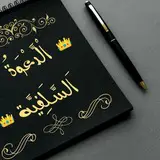 الدعوة
السلفية